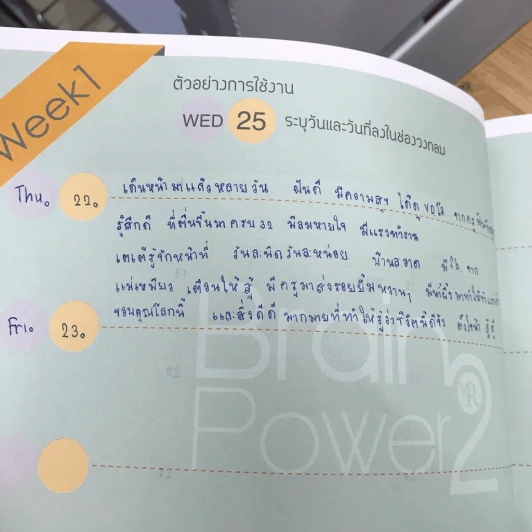 Week1
ตัวอย่างการใช้งาน
WED 25 ระบุวันและวันที่ลงในช่องวงกลม
Thu. 22. เดินหน้ามาแล้วหลายวัน ฝันดี มีความสุข ได้ดู VDO จากครู
รู้สึกดี ที่ตื่นขึ้นมาครบ 32 มีลมหายใจ มีแรงทำงาน
เตเต้รู้จักหน้าที่ วันละนิดวันละหน่อย บ้านสะอาด
แม่เขียว เตือนให้สู้ มีครูมาส่งรอยยิ้มหวานๆ
Fri. 23. ขอบคุณโลกนี้ และสิ่งดีดี มากมายที่ทำให้รู้ว่าชีวิตนี้ดีจัง
Brain
Power2